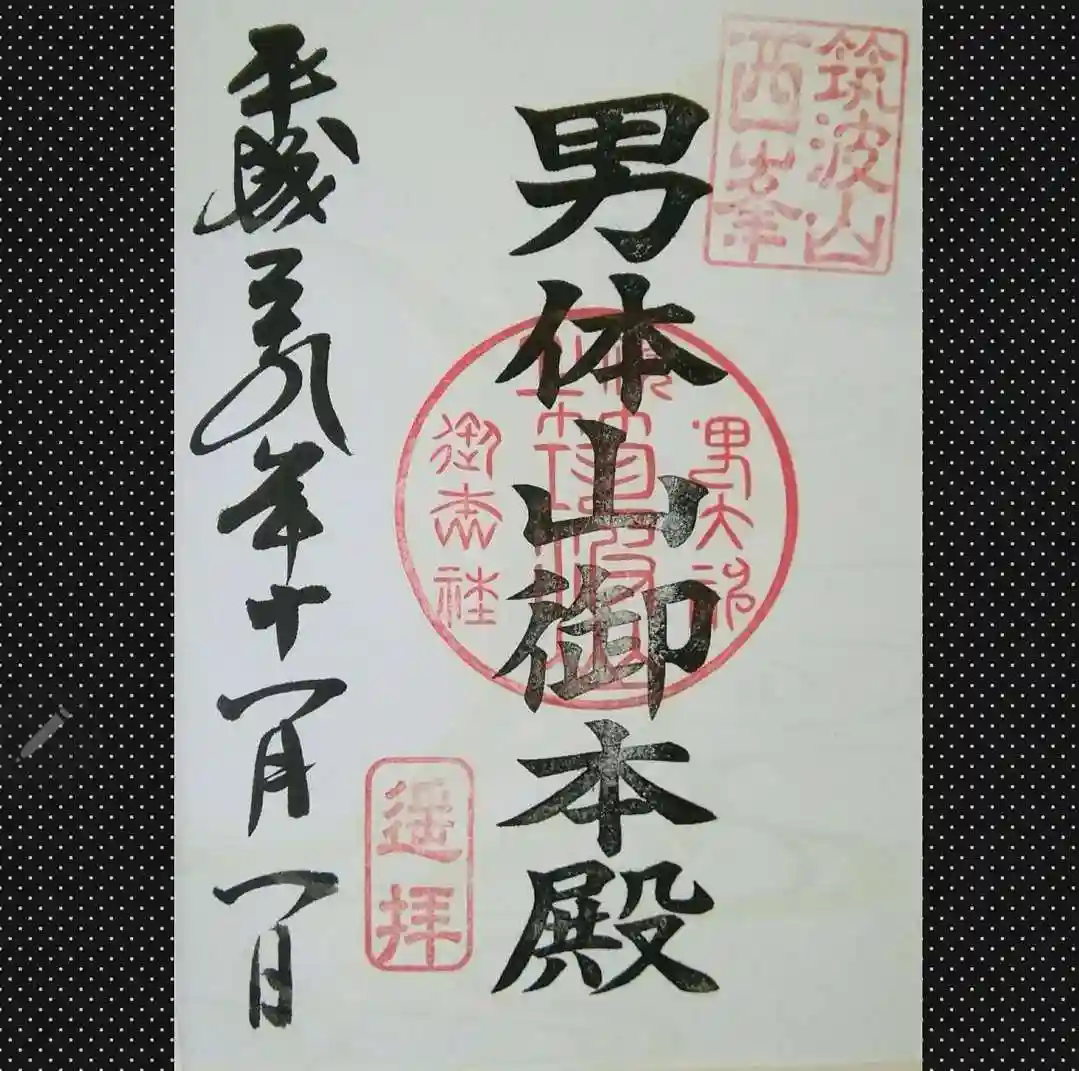 筑波山
西峯
男体山御本殿
男大神
御本社
遥拝
平成 年十一月一日